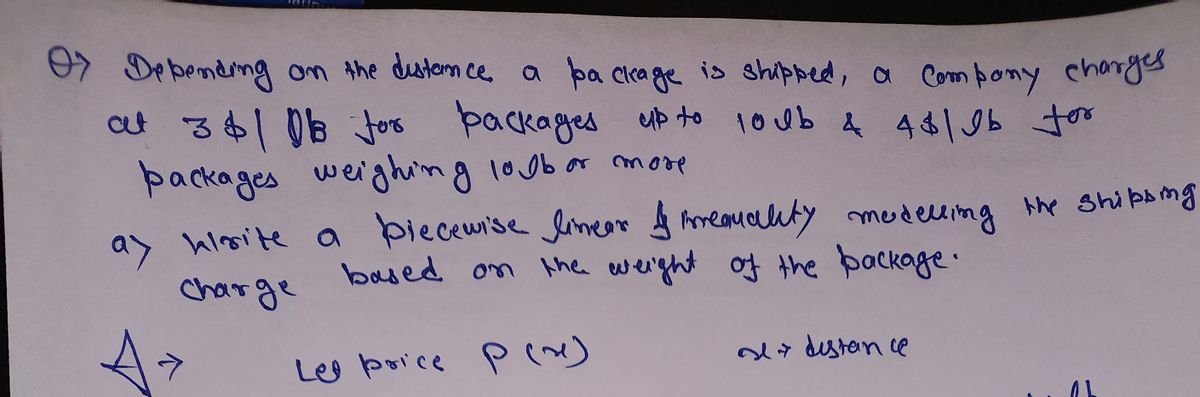 Q> Depending on the distance a package is shipped, a company charges
at 3$/lb for packages up to 10lb & 4$/lb for
packages weighing 10lb or more
a> Write a piecewise linear & inequality modelling the shipping
charge based on the weight of the package.
A→ Let price P(x) x→ distance
lb